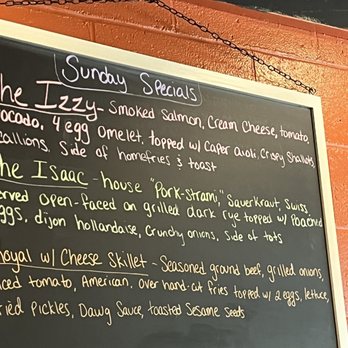 Sunday Specials
he Izzy - Smoked Salmon, Cream Cheese, tomato,
ocado, 4 egg Omelet, topped w/ Caper aioli Crispy Shallots,
allions. Side of homefries & toast
he Isaac - house "Pork-strami," Sauerkraut, Swiss
erved open-faced on grilled dark rye topped w/ Poached
ggs, dijon hollandaise, Crunchy onions, side of tots
oyal w/ Cheese Skillet - Seasoned ground beef, grilled onions,
iced tomato, American. over hand-cut fries topped w/ 2 eggs, lettuce,
ried Pickles, Dawg Sauce, toasted Sesame seeds